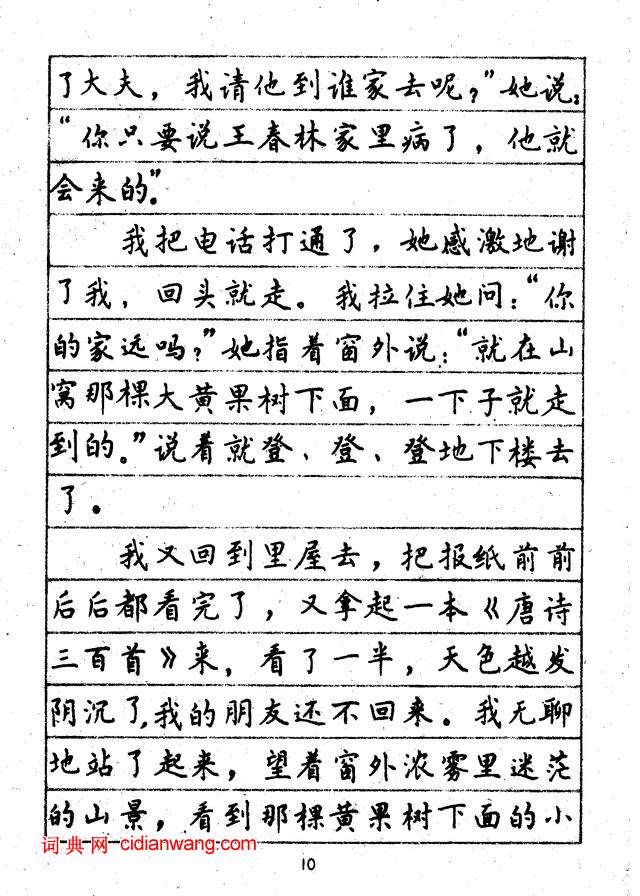 了大夫，我请他到谁家去呢？”她说：
“你只要说王春林家里病了，他就
会来的。”
我把电话打通了，她感激地谢
了我，回头就走。我拉住她问：“你
的家远吗？”她指着窗外说：“就在山
窝那棵大黄果树下面，一下子就走
到的。”说着就登、登、登地下楼去
了。
我又回到里屋去，把报纸前前
后后都看完了，又拿起一本《唐诗
三百首》来，看了一半，天色越发
阴沉了，我的朋友还不回来。我无聊
地站了起来，望着窗外浓雾里迷茫
的山景，看到那棵黄果树下面的小
词典网 cidianwang.com
10